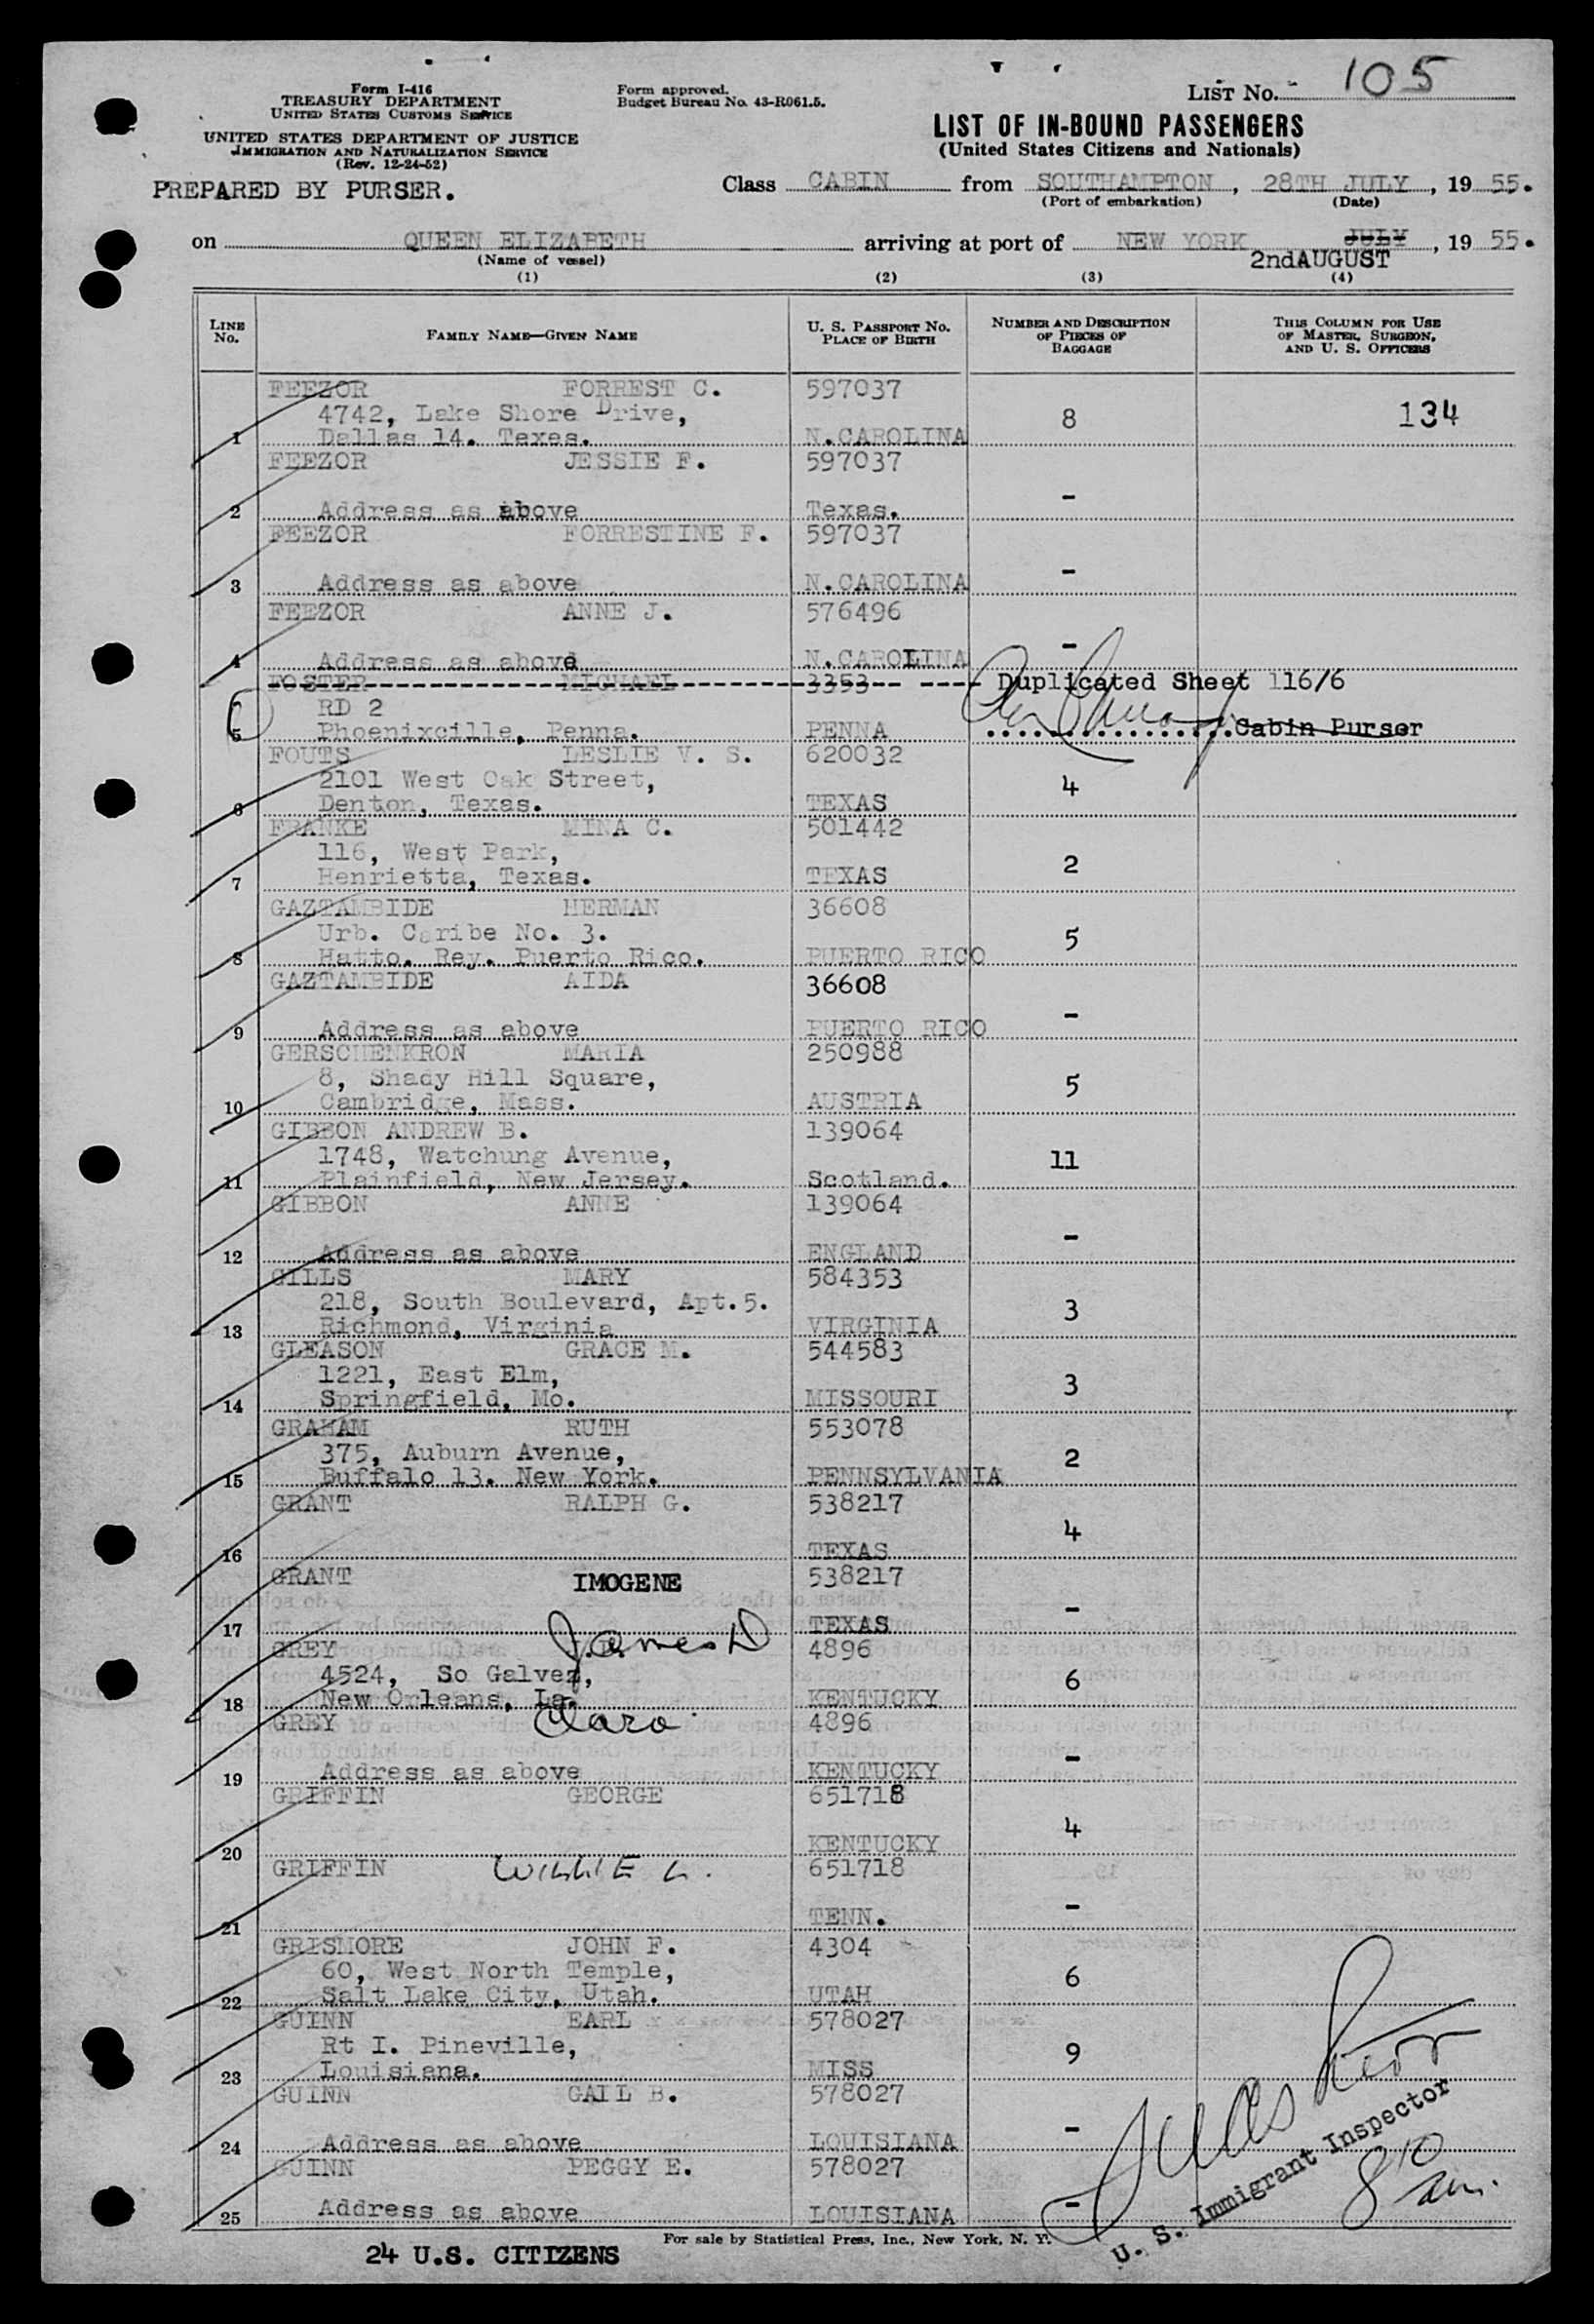 Form I-416
TREASURY DEPARTMENT
UNITED STATES CUSTOMS SERVICE
UNITED STATES DEPARTMENT OF JUSTICE
IMMIGRATION AND NATURALIZATION SERVICE
(Rev. 12-24-52)
PREPARED BY PURSER.
Form approved.
Budget Bureau No. 43-R061.5.
LIST No. 105
LIST OF IN-BOUND PASSENGERS
(United States Citizens and Nationals)
Class CABIN from SOUTHAMPTON, 28TH JULY, 1955.
(Port of embarkation) (Date)
on QUEEN ELIZABETH arriving at port of NEW YORK JULY, 1955.
(Name of vessel) 2ndAUGUST
(1) (2) (3) (4)
LINE No. FAMILY NAME—GIVEN NAME U. S. PASSPORT NO. PLACE OF BIRTH NUMBER AND DESCRIPTION OF PIECES OF BAGGAGE THIS COLUMN FOR USE OF MASTER, SURGEON, AND U. S. OFFICERS
FEEZOR FORREST C. 597037
4742, Lake Shore Drive, 8 134
1 Dallas 14. Texas. N.CAROLINA
FEEZOR JESSIE F. 597037
-
2 Address as above Texas.
FEEZOR FORRESTINE F. 597037
-
3 Address as above N.CAROLINA
FEEZOR ANNE J. 576496
-
4 Address as above N.CAROLINA
FOSTER MICHAEL 3353 Duplicated Sheet 116/6
RD 2
5 Phoenixcille, Penna. PENNA Cabin Purser
FOUTS LESLIE V. S. 620032
2101 West Oak Street, 4
6 Denton, Texas. TEXAS
FRANKE MINA C. 501442
116, West Park, 2
7 Henrietta, Texas. TEXAS
GAZTAMBIDE HERMAN 36608
Urb. Caribe No. 3. 5
8 Hatto. Rey. Puerto Rico. PUERTO RICO
GAZTAMBIDE AIDA 36608
-
9 Address as above PUERTO RICO
GERSCHENKRON MARIA 250988
8, Shady Hill Square, 5
10 Cambridge, Mass. AUSTRIA
GIBBON ANDREW B. 139064
1748, Watchung Avenue, 11
11 Plainfield, New Jersey. Scotland.
GIBBON ANNE 139064
-
12 Address as above ENGLAND
GILLS MARY 584353
218, South Boulevard, Apt.5. 3
13 Richmond, Virginia VIRGINIA
GLEASON GRACE M. 544583
1221, East Elm, 3
14 Springfield, Mo. MISSOURI
GRAHAM RUTH 553078
375, Auburn Avenue, 2
15 Buffalo 13. New York. PENNSYLVANIA
GRANT RALPH G. 538217
4
16 TEXAS
GRANT IMOGENE 538217
-
17 TEXAS
GREY James D 4896
4524, So Galvez, 6
18 New Orleans, La. KENTUCKY
GREY Clara 4896
-
19 Address as above KENTUCKY
GRIFFIN GEORGE 651718
4
20 KENTUCKY
GRIFFIN WILLIE L. 651718
-
21 TENN.
GRISMORE JOHN F. 4304
60, West North Temple, 6
22 Salt Lake City, Utah. UTAH
GUINN EARL 578027
Rt I. Pineville, 9
23 Louisiana. MISS
GUINN GAIL B. 578027
-
24 Address as above LOUISIANA
GUINN PEGGY E. 578027
-
25 Address as above LOUISIANA
U. S. Immigrant Inspector
8 10 am.
For sale by Statistical Press, Inc., New York, N. Y.
24 U.S. CITIZENS